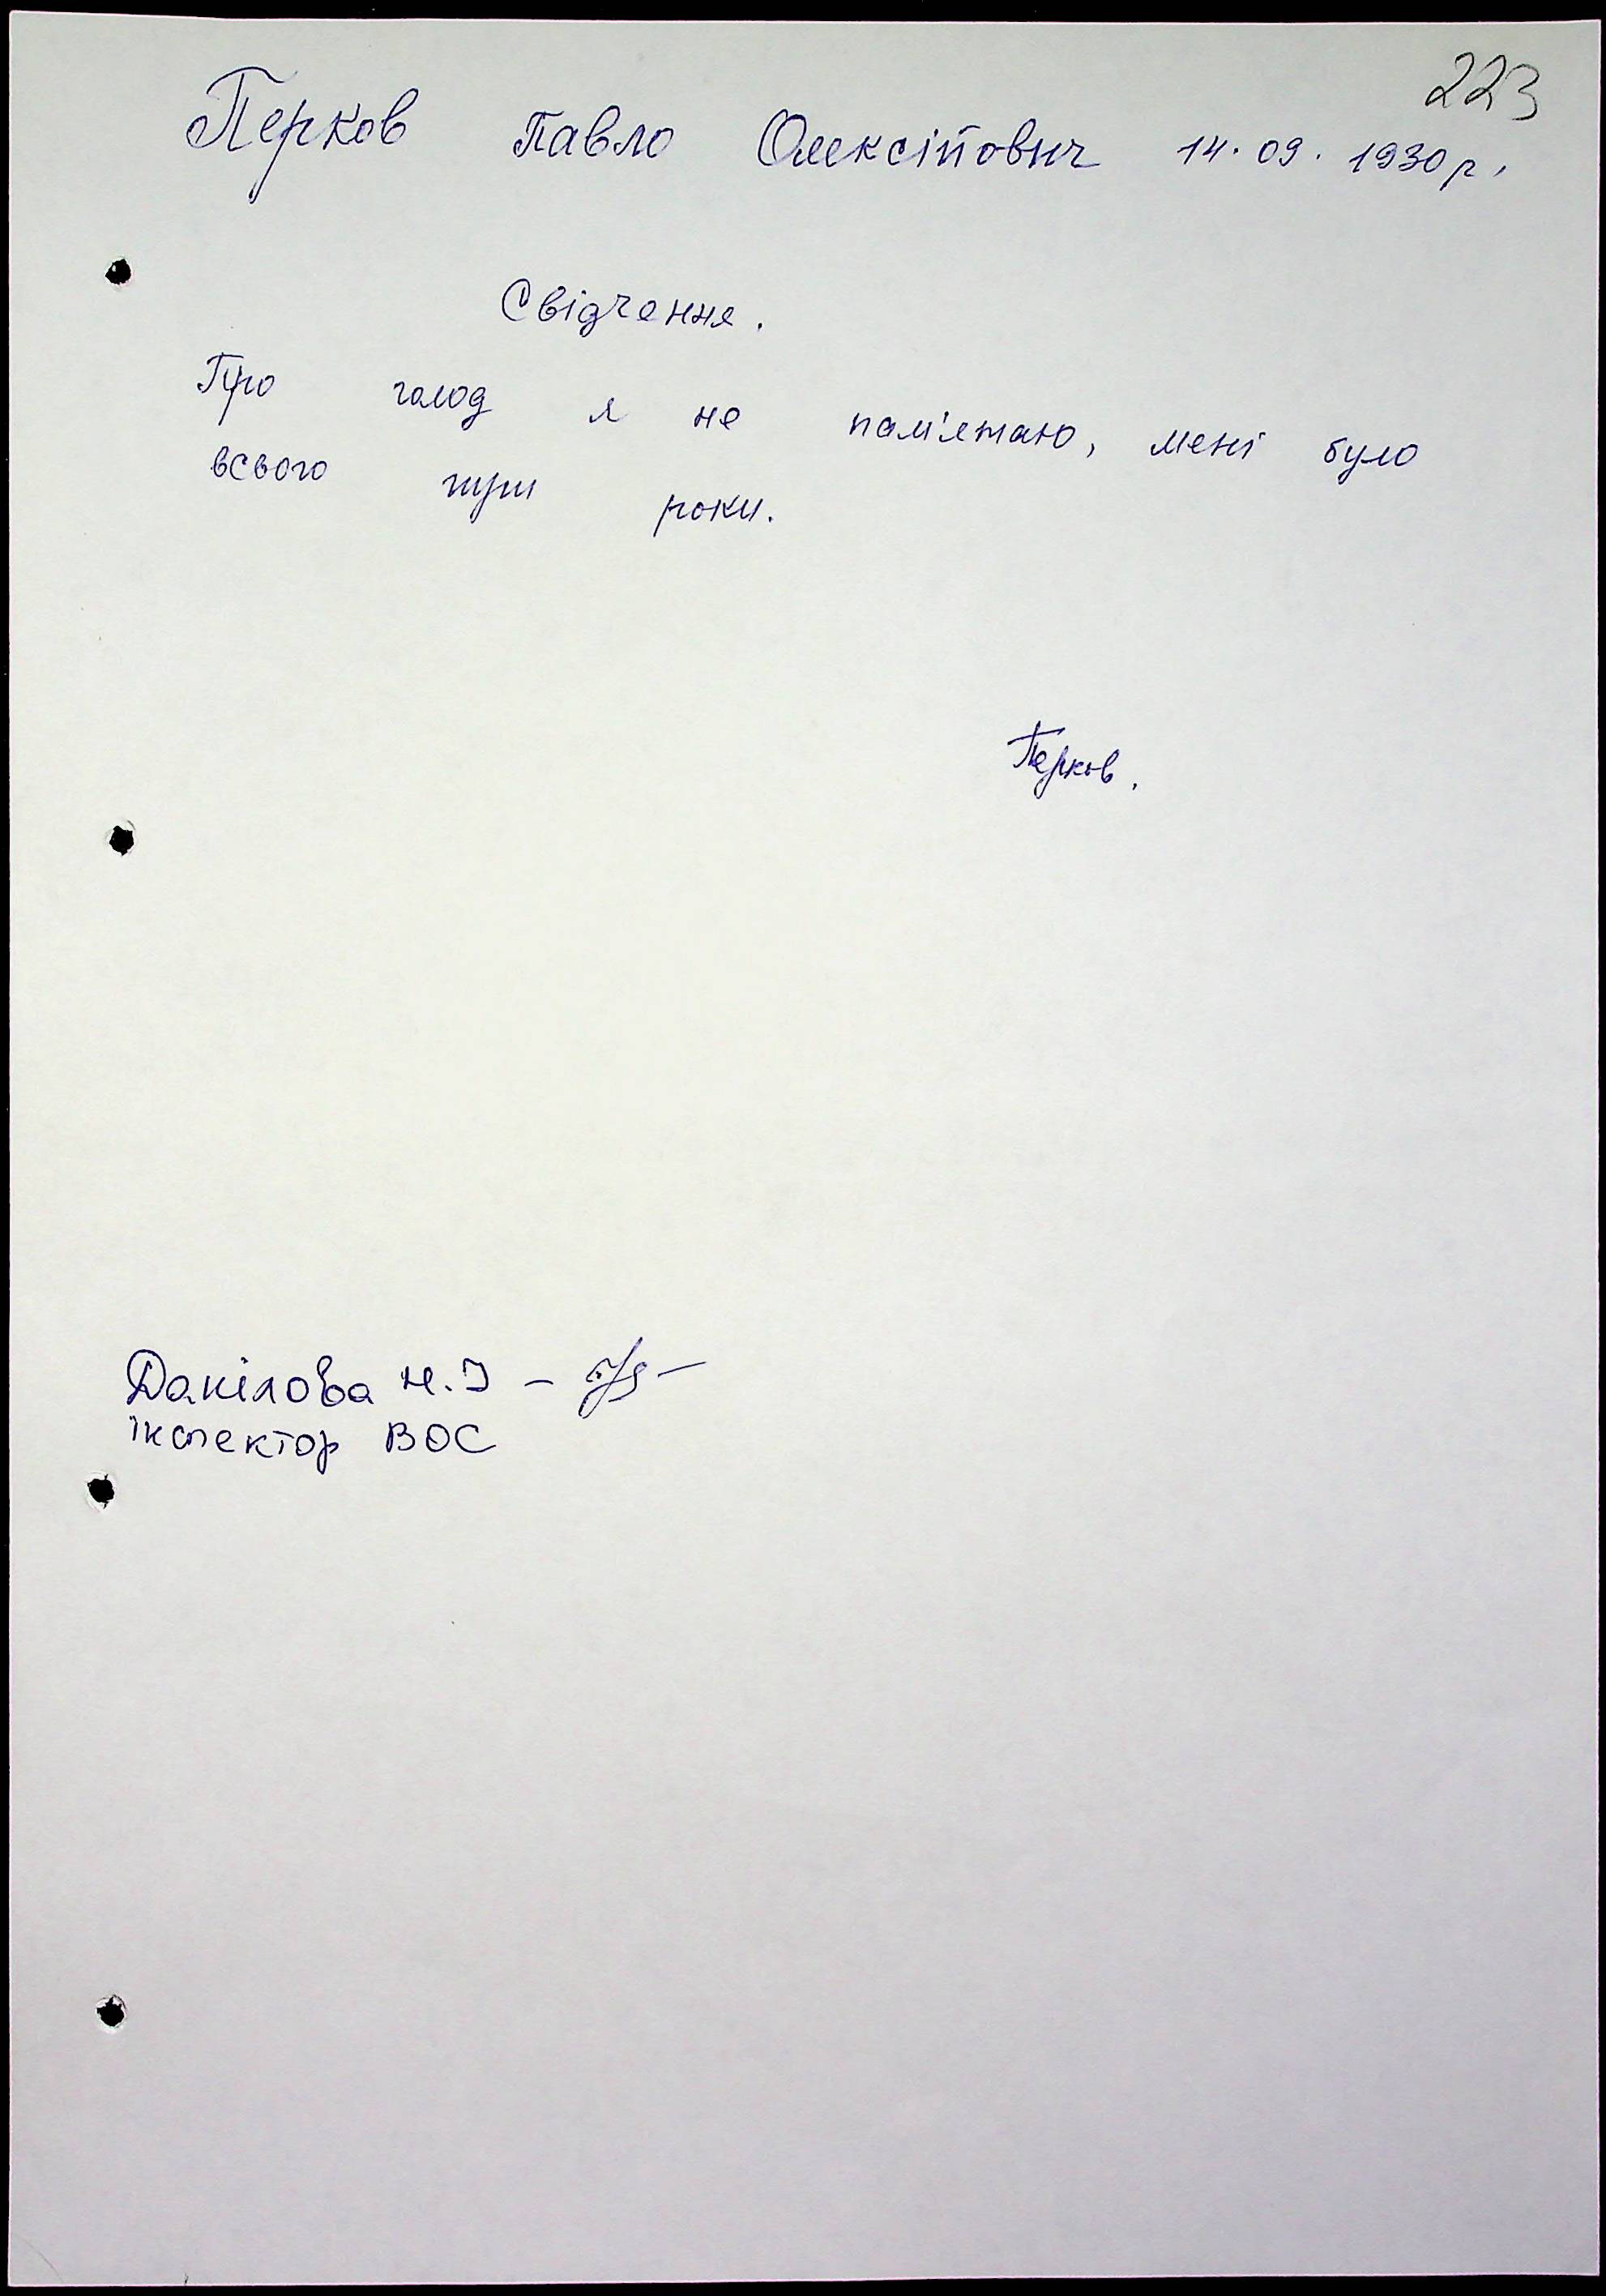 223
Перков Павло Олексійович 14.09.1930р.
Свідчення.
Про голод я не пам'ятаю, мені було
всього три роки.
Перков.
Данілова Н.І -
інспектор ВОС